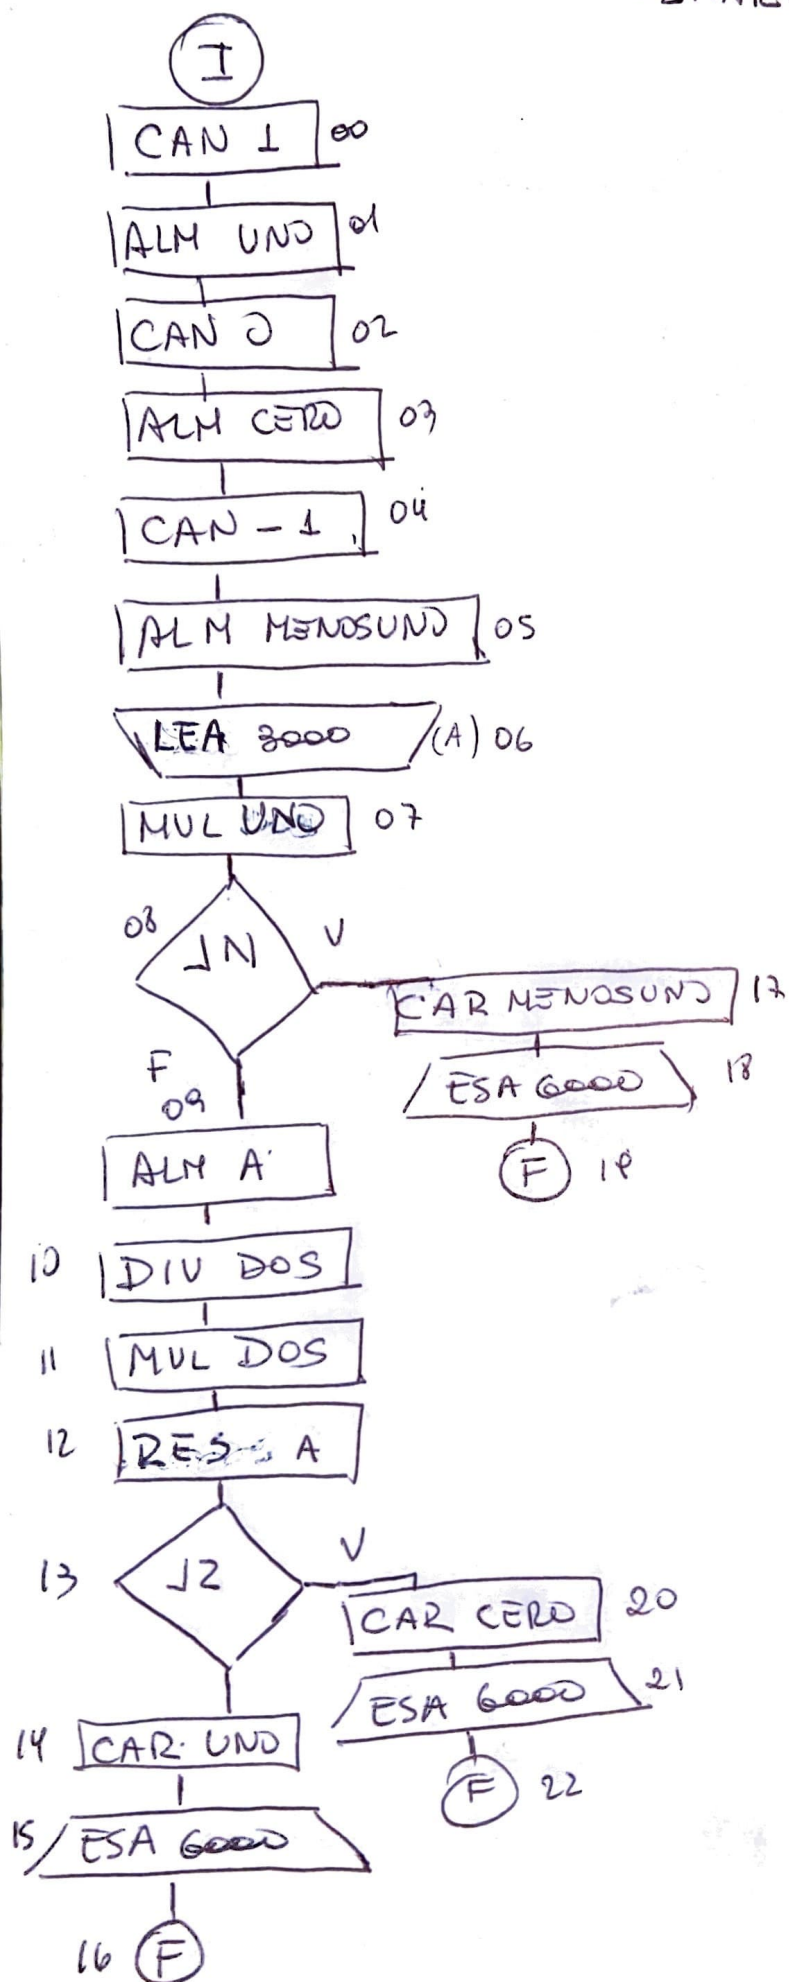 I
CAN 1 00
ALM UNO 01
CAN 0 02
ALM CERO 03
CAN -1 04
ALM MENOSUNO 05
LEA 3000 (A) 06
MUL UNO 07
08 JN V
CAR MENOSUNO 17
F
ESA 6000 18
09
F 19
ALM A
10 DIV DOS
11 MUL DOS
12 RES A
13 JZ V
CAR CERO 20
ESA 6000 21
14 CAR UNO
F 22
15 ESA 6000
16 F